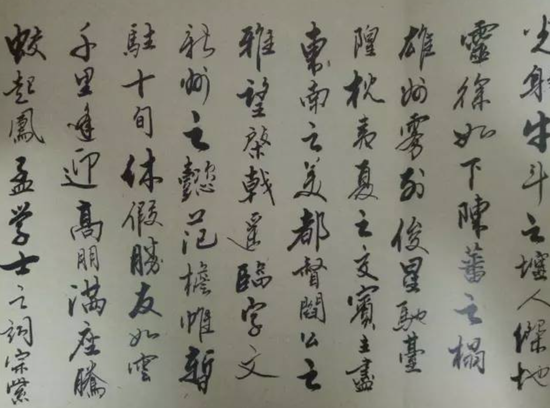 光射牛斗之墟人傑地
靈徐如下陳蕃之榻
雄州霧列俊星馳臺
隍枕夷夏之交賓主盡
東南之美都督閻公之
雅望棨戟遙臨宇文
新州之懿范襜帷暫
駐十旬休假勝友如雲
千里逢迎高朋滿座騰
蛟起鳳孟学士之詞宗紫